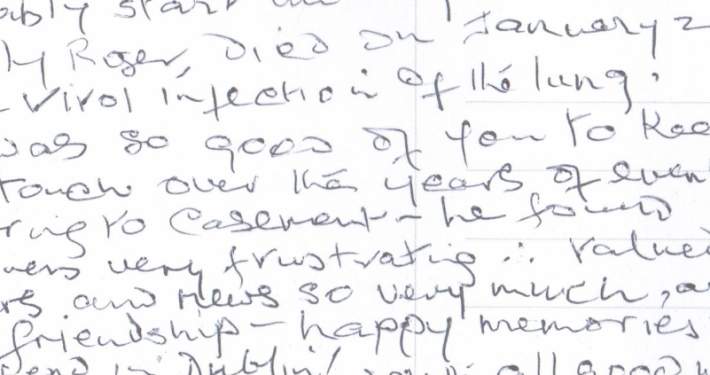 ably start
ly Roger, Died on January 2
Virol infection of the lung.
was so good of you to kee
touch over the years of even
ring to Casement - he found
wers very frustrating ∴ valued
rs and news so very much, a
friendship - happy memories
end in Dublin! all good